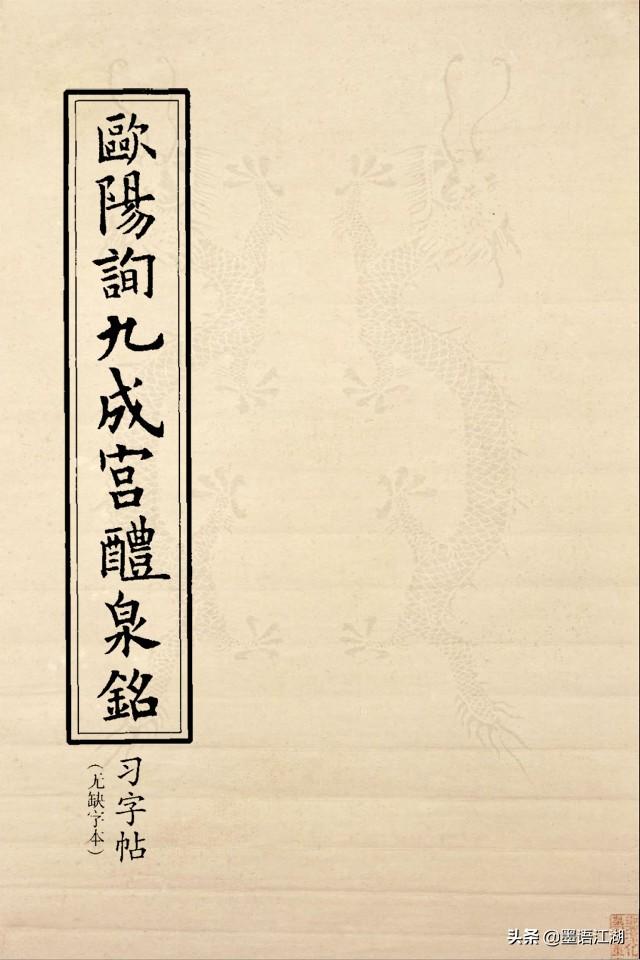 歐陽詢九成宮醴泉銘
习字帖
(无缺字本)
头条 @墨语江湖